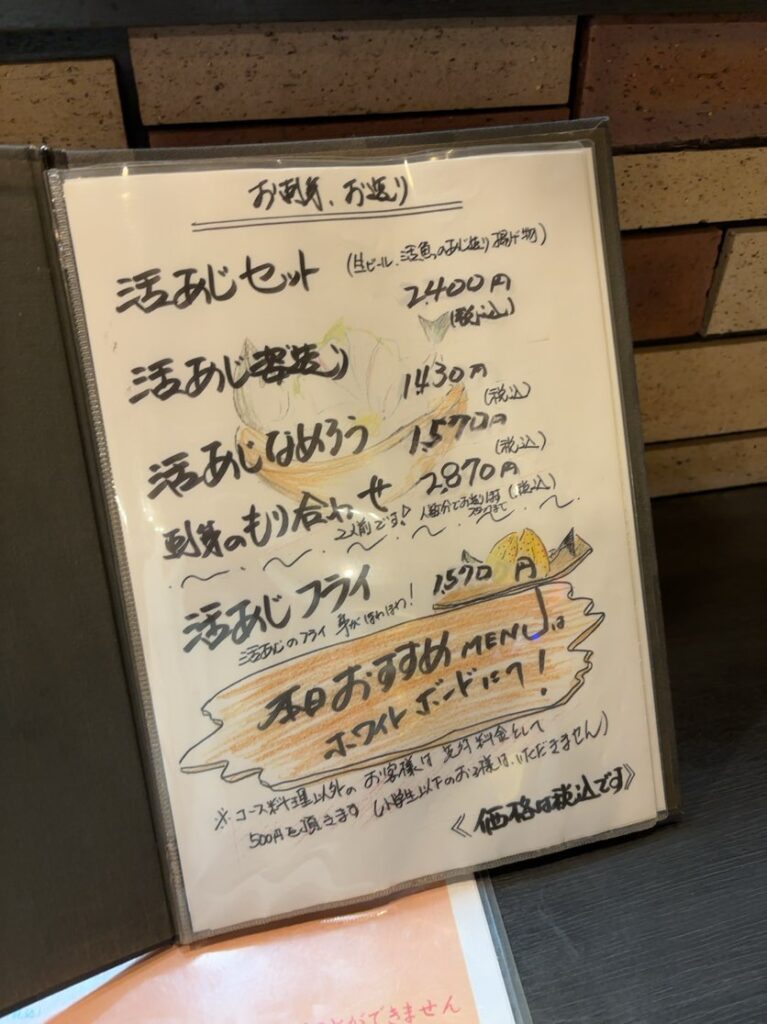 お刺身、お造り
活あじセット (生ビール、活魚のあじ造り 揚げ物)
2,400円
(税込)
活あじ姿造り 1430円
(税込)
活あじなめろう 1,570円
(税込)
刺身のもり合わせ 2,870円
2人前です! (税込)
活あじフライ 1,590円
活あじのフライ 身がほわほわ!
本日おすすめMENUは
ホワイトボードにて!
※コース料理以外のお客様は 料金として
500円を頂きます (小学生以下のお子様は、いただきません)
《価格は税込です》
ことができません